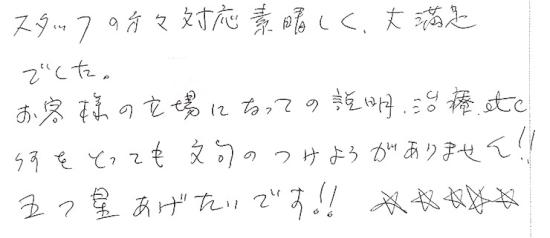 スタッフの方々対応素晴しく、大満足
でした。
お客様の立場になっての説明、治療、etc
何をとっても文句のつけようがありません!!
五つ星あげたいです!! ☆☆☆☆☆